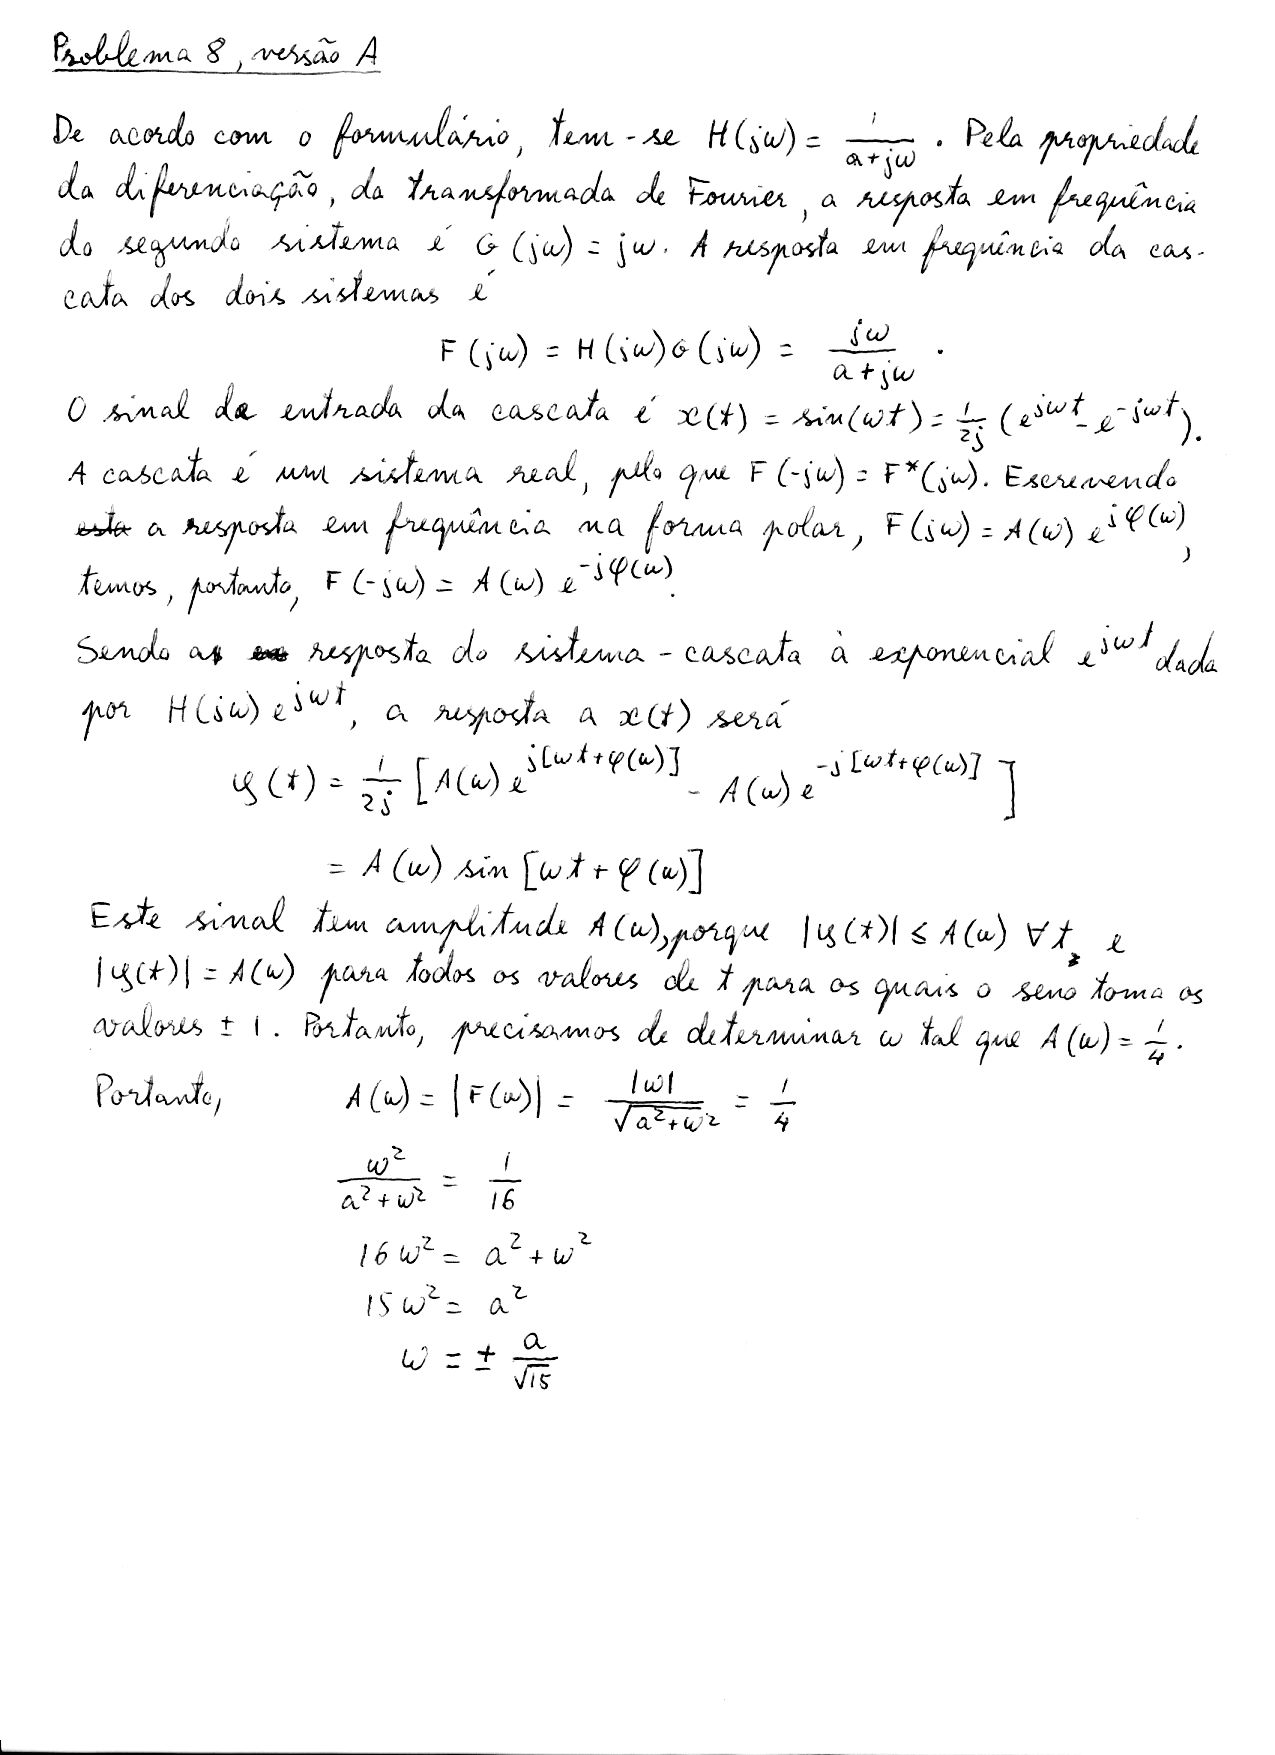 Problema 8, versão A
De acordo com o formulário, tem-se H(jω) = 1/(a+jω). Pela propriedade
da diferenciação, da transformada de Fourier, a resposta em frequência
do segundo sistema é G(jω) = jω. A resposta em frequência da cas-
cata dos dois sistemas é
F(jω) = H(jω)G(jω) = jω/(a+jω).
O sinal de entrada da cascata é x(t) = sin(ωt) = 1/2j (e^{jωt} - e^{-jωt}).
A cascata é um sistema real, pelo que F(-jω) = F*(jω). Escrevendo
a resposta em frequência na forma polar, F(jω) = A(ω) e^{jφ(ω)},
temos, portanto, F(-jω) = A(ω) e^{-jφ(ω)}.
Sendo a resposta do sistema-cascata à exponencial e^{jωt} dada
por H(jω) e^{jωt}, a resposta a x(t) será
y(t) = 1/2j [A(ω) e^{j[ωt+φ(ω)]} - A(ω) e^{-j[ωt+φ(ω)]}]
= A(ω) sin[ωt + φ(ω)]
Este sinal tem amplitude A(ω), porque |y(t)| ≤ A(ω) ∀t, e
|y(t)| = A(ω) para todos os valores de t para os quais o seno toma os
valores ± 1. Portanto, precisamos de determinar ω tal que A(ω) = 1/4.
Portanto, A(ω) = |F(ω)| = |ω|/√(a²+ω²) = 1/4
ω²/(a²+ω²) = 1/16
16ω² = a² + ω²
15ω² = a²
ω = ± a/√15